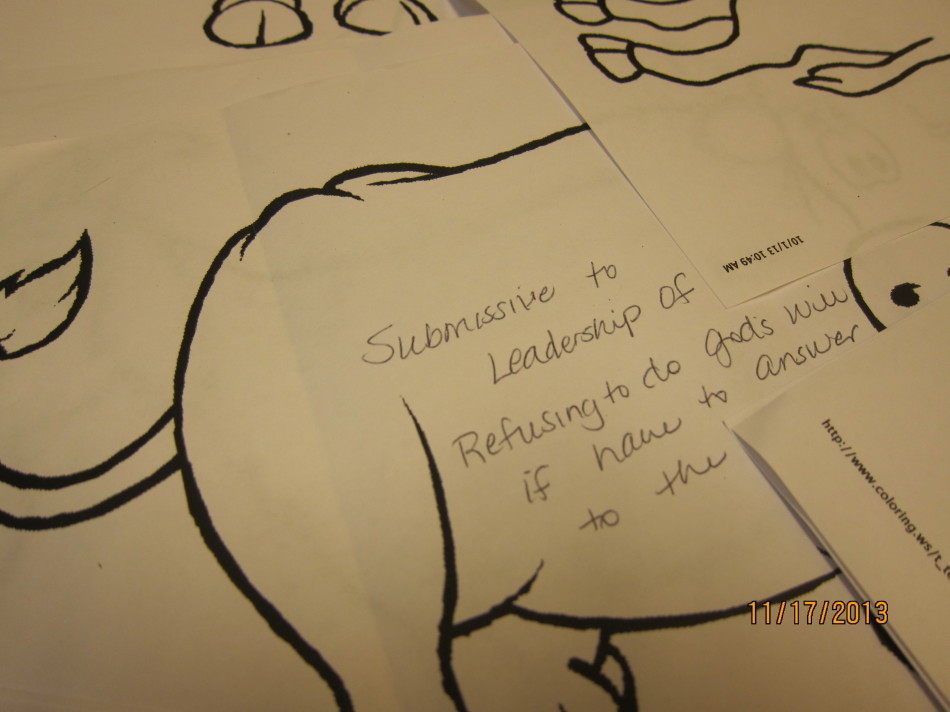 10/1/13 10:49 AM
Submissive to
Leadership of
Refusing to do god's will
if have to answer
to the
http://www.coloring.ws/t_t
11/17/2013